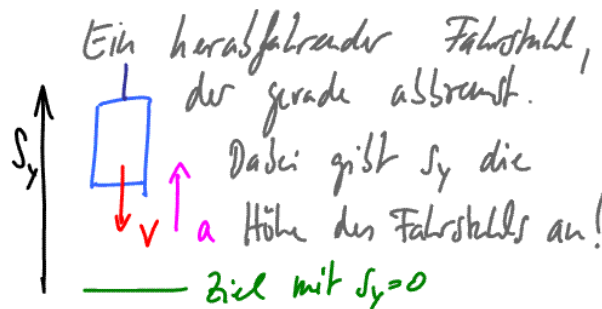 Ein herabfahrender Fahrstuhl,
der gerade abbremst.
Sy
Dabei gibt sy die
v a Höhe des Fahrstuhls an!
Ziel mit sy=0